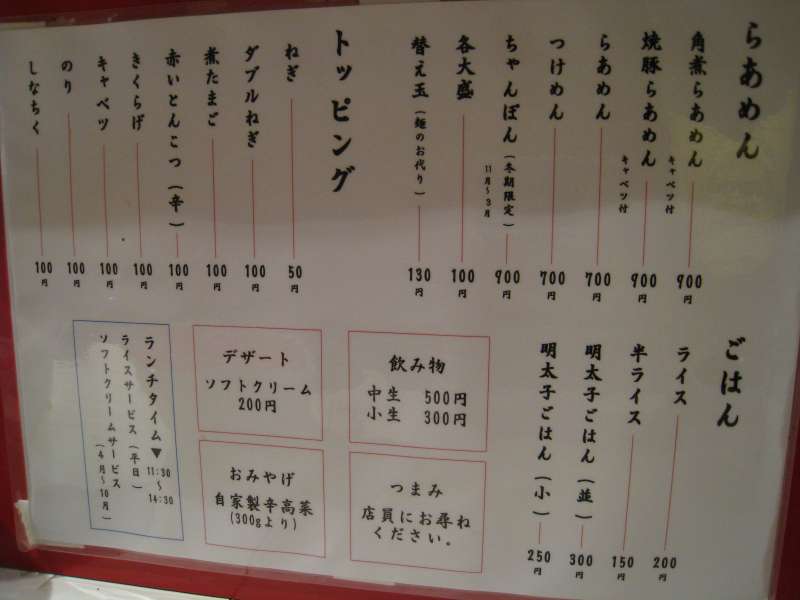 らあめん
角煮らあめん キャベツ付 900円
焼豚らあめん キャベツ付 900円
らあめん 700円
つけめん 700円
ちゃんぽん（冬期限定） 11月～3月 900円
各大盛 100円
替え玉（麺のお代り） 130円
トッピング
ねぎ 50円
ダブルねぎ 100円
煮たまご 100円
赤いとんこつ（辛） 100円
きくらげ 100円
キャベツ 100円
のり 100円
しなちく 100円
ごはん
ライス 200円
半ライス 150円
明太子ごはん（並） 300円
明太子ごはん（小） 250円
飲み物
中生 500円
小生 300円
つまみ
店員にお尋ね
ください。
デザート
ソフトクリーム
200円
おみやげ
自家製辛高菜
(300gより)
ランチタイム▼ 11:30～14:30
ライスサービス（平日）
ソフトクリームサービス（4月～10月）